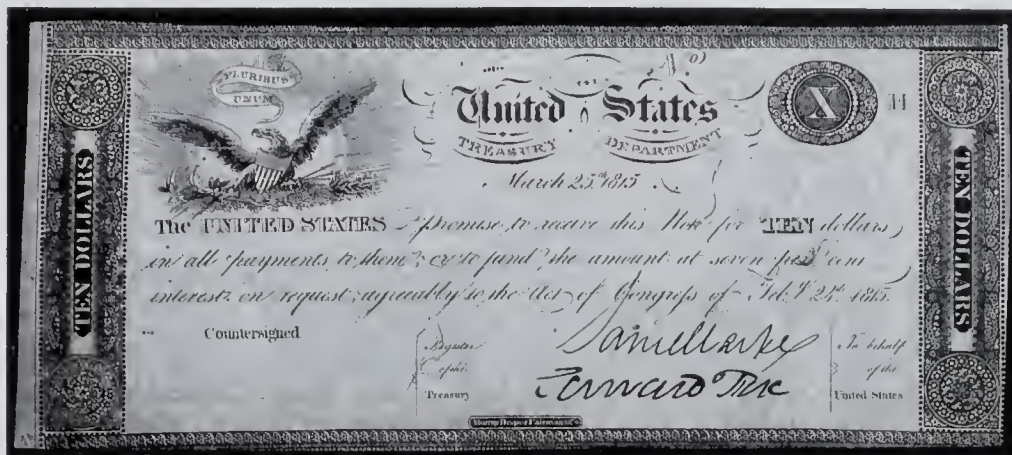 PLURIBUS
UNUM
No.
United States
TREASURY DEPARTMENT
X
March 25th 1815
The UNITED STATES promise to receive this Note for TEN dollars
in all payments to them, or to fund the amount at seven per cent
interest on request, agreeably to the Act of Congreſs of Feb.y 24th 1815.
TEN DOLLARS
TEN DOLLARS
Countersigned
Register
of the
Treasury
In behalf
of the
United States
Murray Draper Fairman & Co.